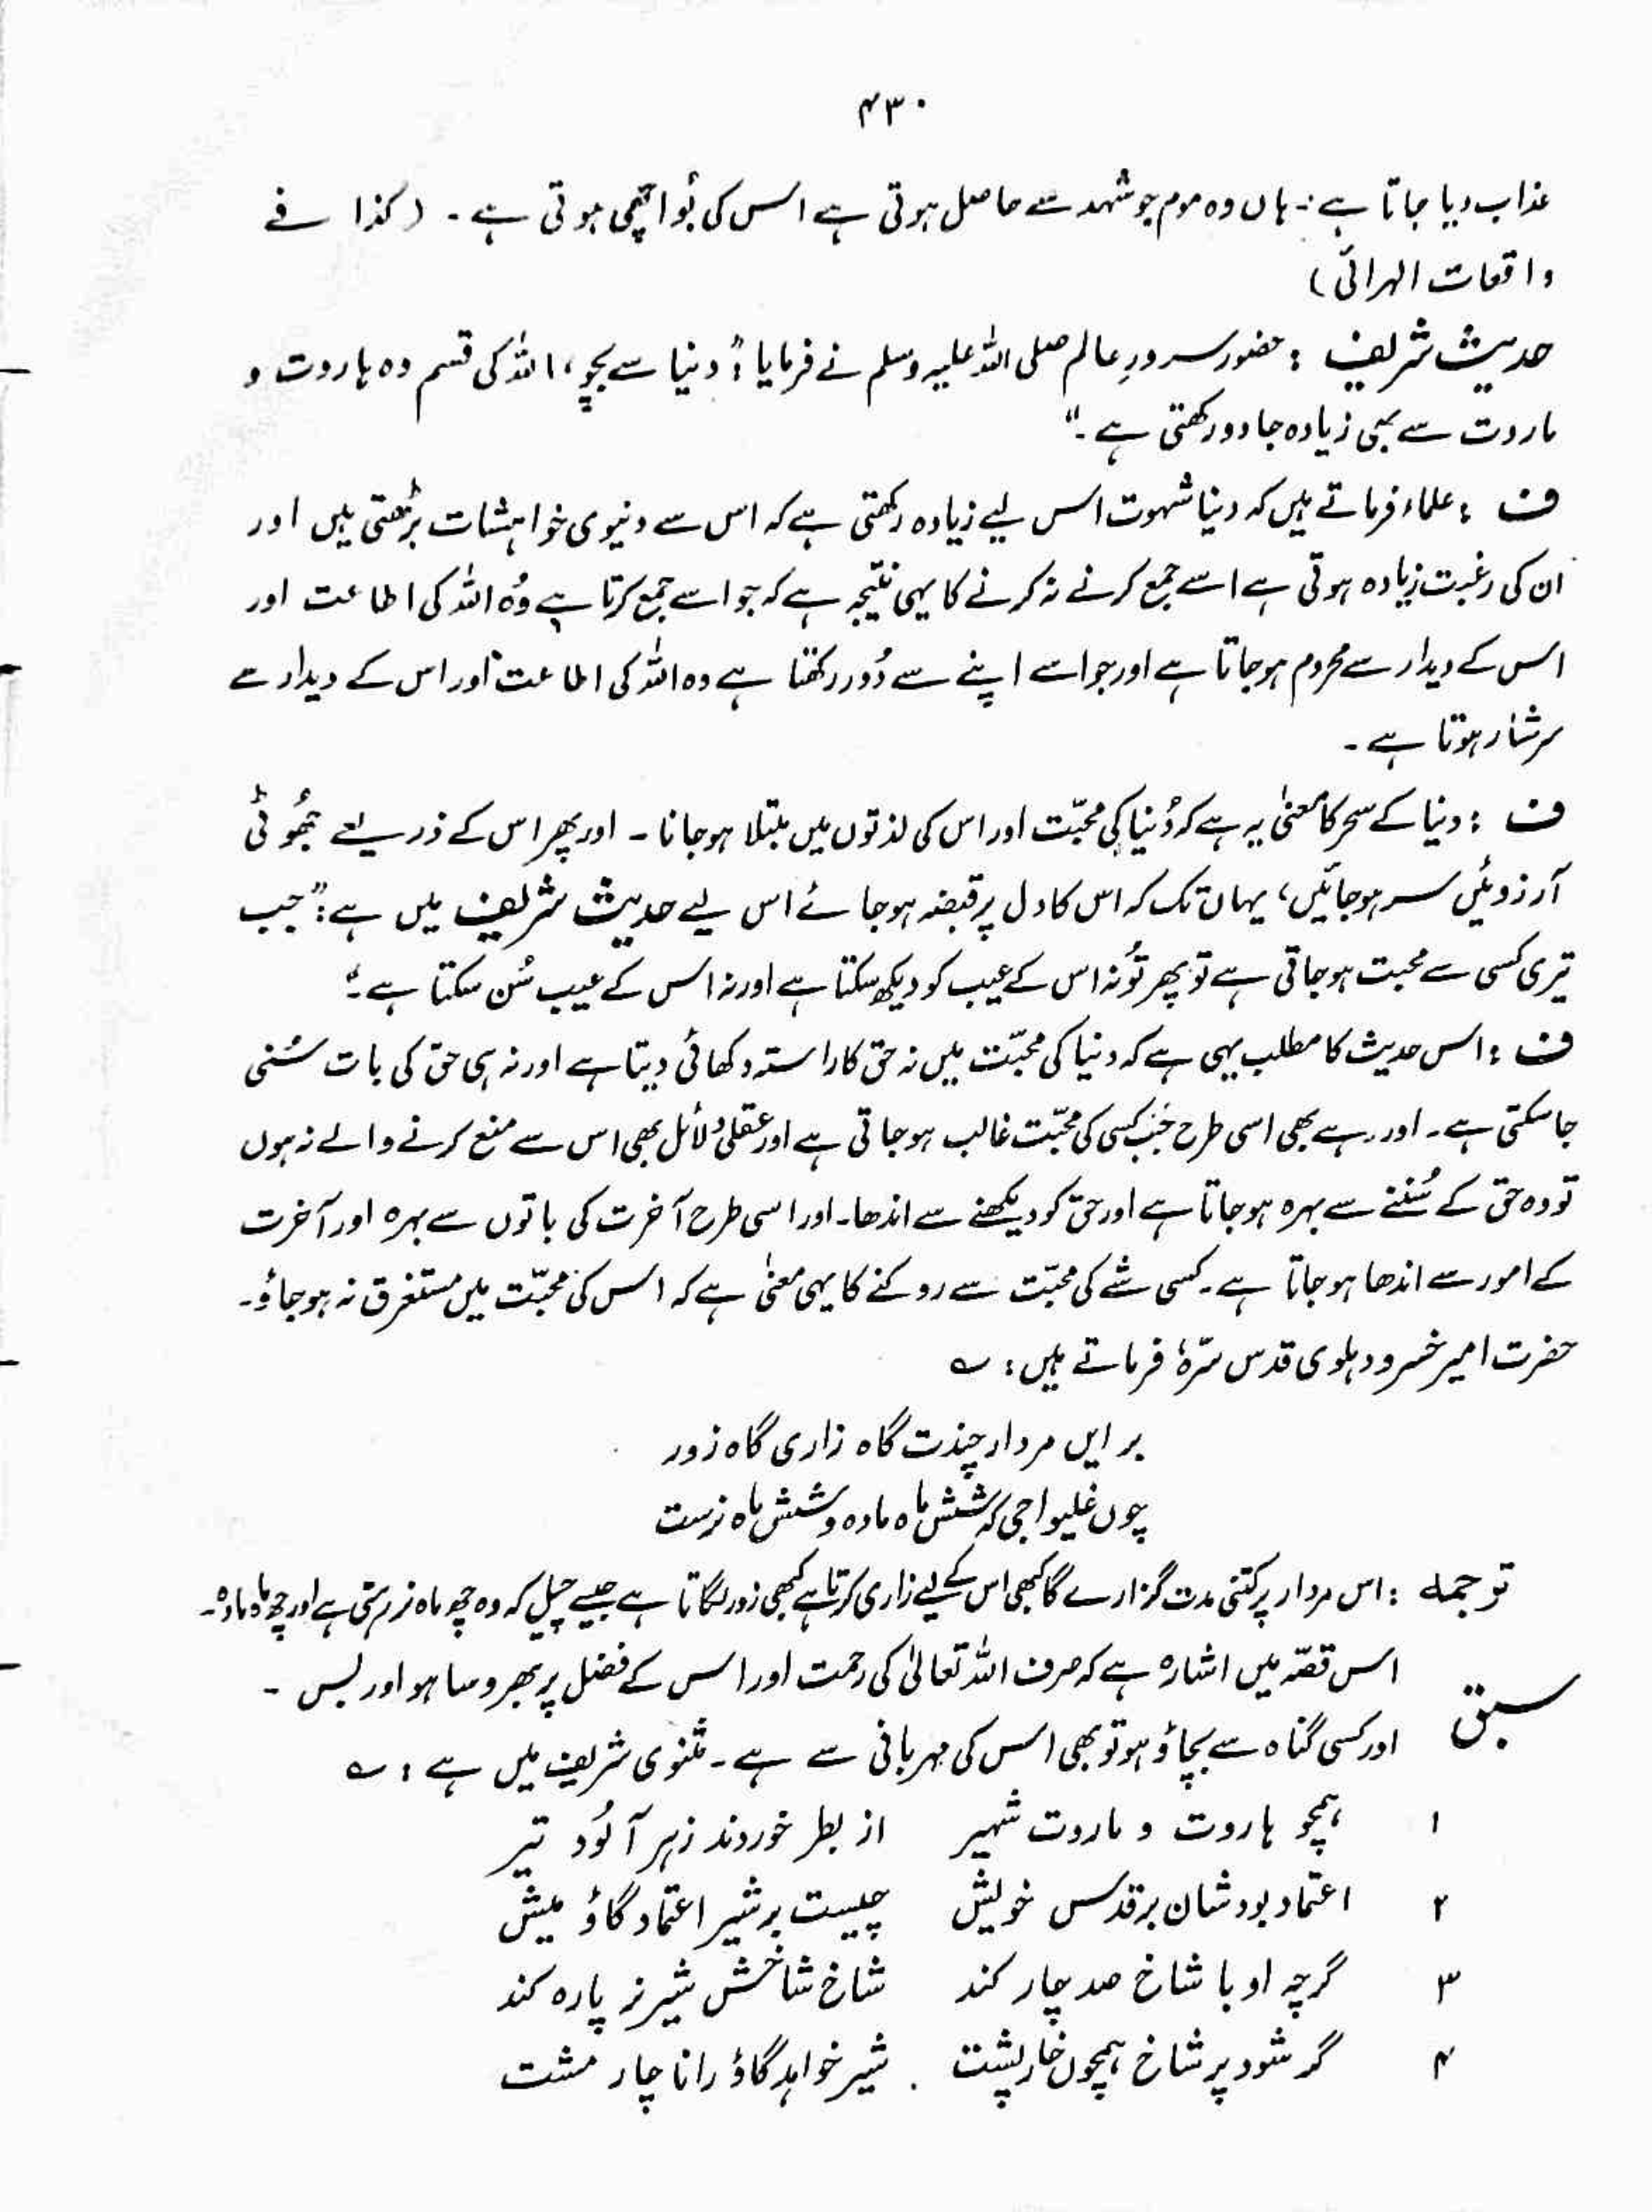 ۴۳۰
عذاب دیا جاتا ہے :۔ ہاں وہ موم جو شہد سے حاصل ہوتی ہے اس کی بُو اچھی ہوتی ہے ۔ (کذا فے
واقعات الہدائی)
حدیث شریف : حضور سرورِ عالم صلی اللہ علیہ وسلم نے فرمایا : "دنیا سے بچو ، اللہ کی قسم وہ ہاروت و
ماروت سے بھی زیادہ جادو رکھتی ہے ۔"
ف : علماء فرماتے ہیں کہ دنیا شہوت اس لیے زیادہ رکھتی ہے کہ اس سے دنیوی خواہشات بڑھتی ہیں اور
ان کی رغبت زیادہ ہوتی ہے اسے جمع کرنے نہ کرنے کا یہی نتیجہ ہے کہ جو اسے جمع کرتا ہے وُہ اللہ کی اطاعت اور
اس کے دیدار سے محروم ہو جاتا ہے اور جو اسے اپنے سے دُور رکھتا ہے وہ اللہ کی اطاعت اور اس کے دیدار سے
سرشار ہوتا ہے ۔
ف : دنیا کے سحر کا معنیٰ یہ ہے کہ دُنیا کی محبّت اور اس کی لذتوں میں مبتلا ہو جانا ۔ اور پھر اس کے ذریعے جھُوٹی
آرزوئیں سر ہو جائیں ، یہاں تک کہ اس کا دل پر قبضہ ہو جائے اس لیے حدیث شریف میں ہے : "جب
تیری کسی سے محبت ہو جاتی ہے تو پھر تُو نہ اس کے عیب کو دیکھ سکتا ہے اور نہ اس کے عیب سُن سکتا ہے ۔"
ف : اس حدیث کا مطلب یہی ہے کہ دنیا کی محبّت میں نہ حق کا راستہ دکھائی دیتا ہے اور نہ ہی حق کی بات سُنی
جا سکتی ہے ۔ اور ہے بھی اسی طرح جب کسی کی محبّت غالب ہو جاتی ہے اور عقلی دلائل بھی اس سے منع کرنے والے نہ ہوں
تو وہ حق کے سُننے سے بہرہ ہو جاتا ہے اور حق کو دیکھنے سے اندھا ۔ اور اسی طرح آخرت کی باتوں سے بہرہ اور آخرت
کے امور سے اندھا ہو جاتا ہے ۔ کسی شے کی محبّت سے روکنے کا یہی معنیٰ ہے کہ اس کی محبّت میں مستغرق نہ ہو جاؤ ۔
حضرت امیر خسرو دہلوی قدس سرّہٗ فرماتے ہیں : ؎
بر ایں مردار چندت گاہ زاری گاہ زور
چوں غلیواجی کہ شش ماہ مادہ و شش ماہ نرست
ترجمہ : اس مردار پر کتنی مدت گزارے گا کبھی اس کے لیے زاری کرتا ہے کبھی زور لگاتا ہے جیسے چیل کہ وہ چھ ماہ نر رہتی ہے اور چھ ماہ مادہ ۔
سبق اس قصّہ میں اشارہ ہے کہ صرف اللہ تعالیٰ کی رحمت اور اس کے فضل پر بھروسا ہو اور بس ۔
اور کسی گناہ سے بچاؤ ہو تو بھی اس کی مہربانی سے ہے ۔ مثنوی شریف میں ہے : ؎
۱ ہمچو ہاروت و ماروت شہیر از بطر خوردند زہر آلُود تیر
۲ اعتماد بود شان بر قدس خویش چیست بر شیر اعتماد گاؤ میش
۳ گرچہ او با شاخ صد چار کند شاخ شاخش شیر نر پارہ کند
۴ گر شود پر شاخ ہمچوں خار پشت شیر خواہد گاؤ را نا چار مشت